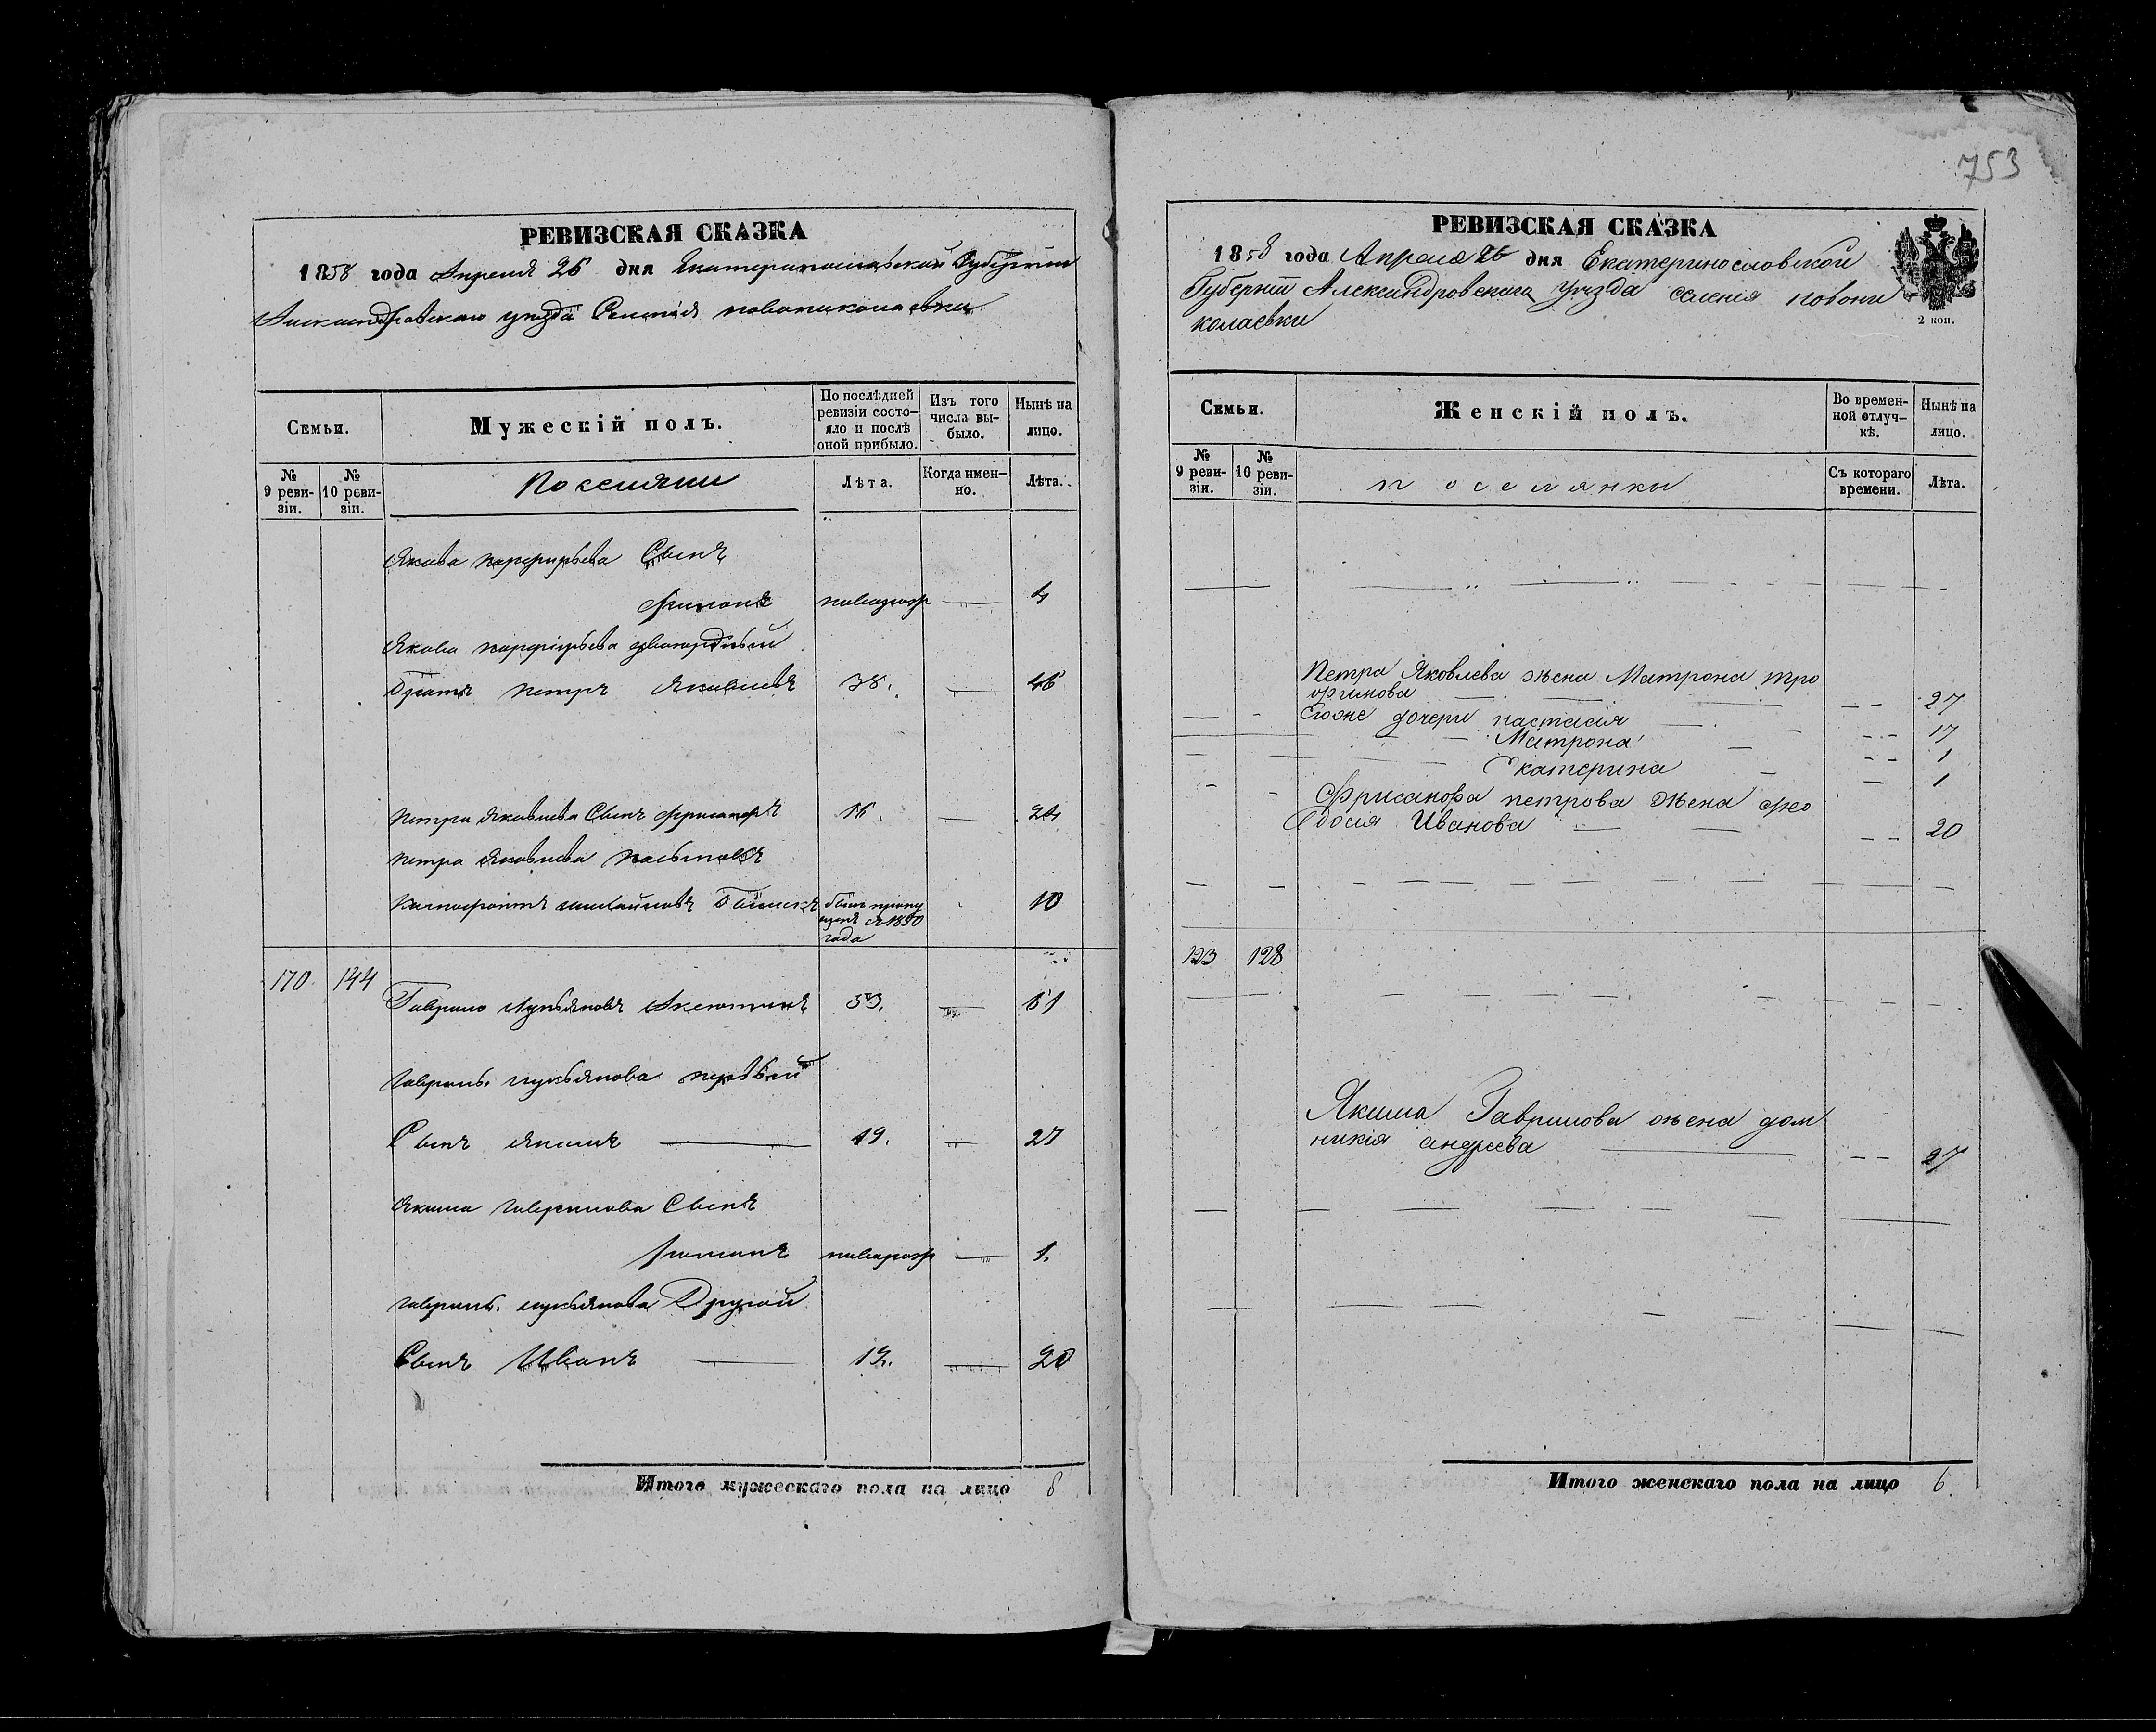 753
РЕВИЗСКАЯ СКАЗКА
1858 года Апреля 26 дня Екатеринославской Губернiи
Александровского уезда Селенiя новониколаевки
Семьи.
Мужескiй полъ.
По послѣдней ревизiи состо-
яло и послѣ оной прибыло.
Изъ того числа вы-
было.
Нынѣ на лицо.
№ 9 реви-
зiи.
№ 10 реви-
зiи.
Поселяни
Лѣта.
Когда имен-
но.
Лѣта.
Якова парфирьева Сынъ
новорож 4
Якова парфирьева двоюродный
Братъ петръ Яковлевъ 38. 46
петра Яковлева Сынъ 16. 24
петра Яковлева
10
170 144
Гаврило Лукьяновъ Аксютинъ 53. 61
Гаврилы лукьянова первый
Сынъ Якимъ 19. 27
Якима гаврилова Сынъ
новорож 1.
гаврилы лукьянова Другой
Сынъ Иванъ 12. 20
Итого мужескаго пола на лицо 8
РЕВИЗСКАЯ СКАЗКА
1858 года Апреля 26 дня Екатеринославской
Губернiи Александровскаго уезда селенiя новони
колаевки
2 коп.
Семьи.
Женскiй полъ.
Во времен-
ной отлуч-
кѣ.
Нынѣ на лицо.
№ 9 реви-
зiи.
№ 10 реви-
зiи.
поселянки
Съ котораго времени.
Лѣта.
Петра Яковлева жена Матрона тро
фимова 27
Егоже дочери настасiя 17
Матрона 1
Екатерина 1
петрова жена фео
досiя Иванова 20
123 128
Якима Гаврилова жена дом
никiя андреева 27
Итого женскаго пола на лицо 6.